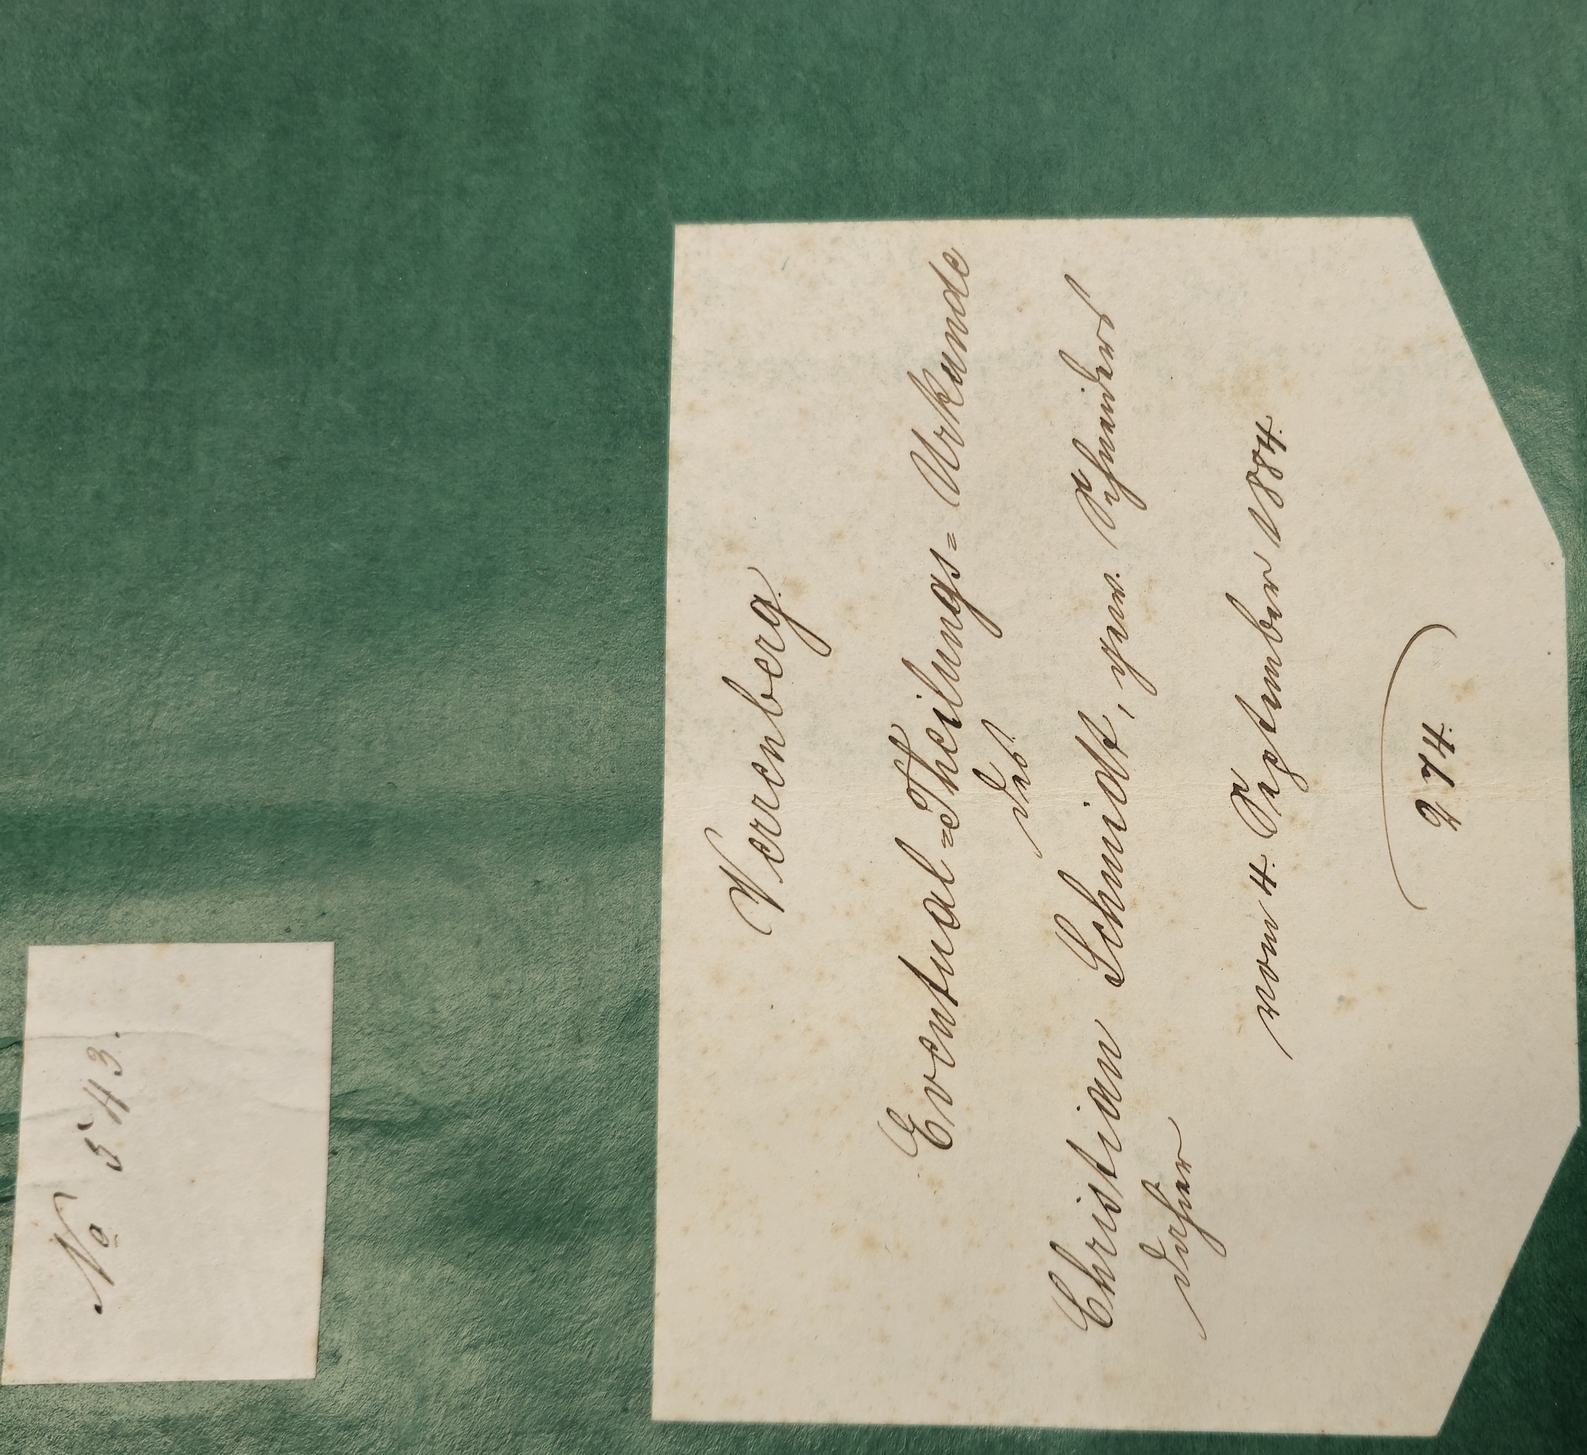 No 543.
Verrenberg.
Eventual=Theilungs=Urkunde
des
Christian Schmidt, gew. Schneiders
daher
vom 4. September 1884.
274.